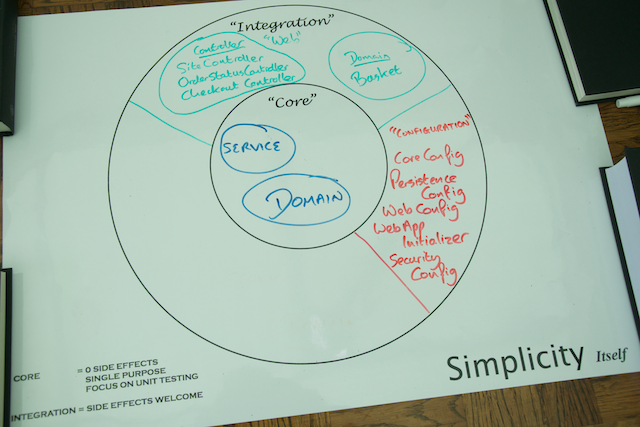 "Integration"
"Web"
Controller
SiteController
OrderStatusController
Checkout Controller
Domain
Basket
"Core"
SERVICE
DOMAIN
"CONFIGURATION"
CoreConfig
Persistence
Config
WebConfig
WebApp
Initializer
Security
Config
CORE = 0 SIDE EFFECTS
SINGLE PURPOSE
FOCUS ON UNIT TESTING
INTEGRATION = SIDE EFFECTS WELCOME
Simplicity Itself